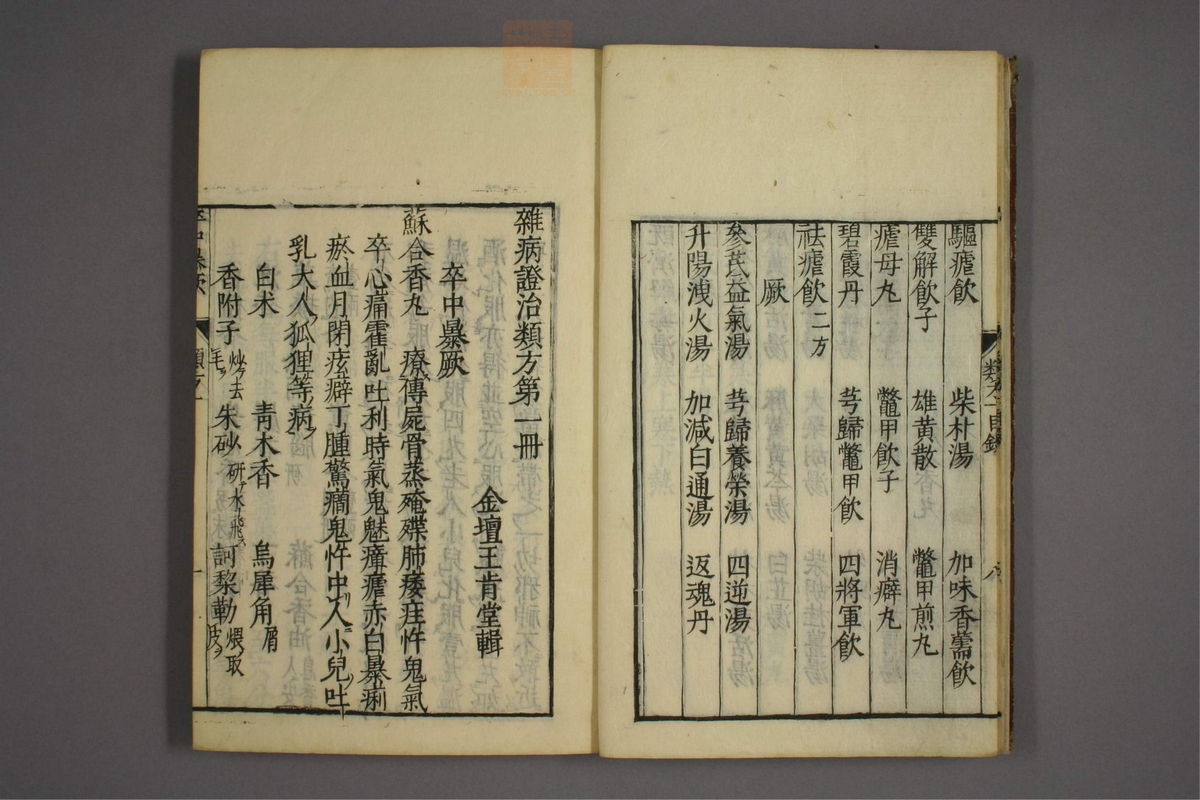 驅瘧飲　柴朴湯　加味香薷飲
雙解飲子　雄黃散　鼈甲煎丸
瘧母丸　鼈甲飲子　消癖丸
碧霞丹　芎歸鼈甲飲　四將軍飲
祛瘧飲二方
厥
參芪益氣湯　芎歸養榮湯　四逆湯
升陽洩火湯　加減白通湯　返魂丹
雜病證治類方第一冊
金壇王肯堂輯
卒中暴厥
蘇合香丸　療傳屍骨蒸殗殜肺痿疰忤鬼氣
卒心痛霍亂吐利時氣鬼魅瘴瘧赤白暴痢
瘀血月閉痃癖丁腫驚癇鬼忤中人小兒吐
乳大人狐狸等病
白朮　青木香　烏犀角屑
香附子炒去毛　朱砂研水飛　訶黎勒煨取皮